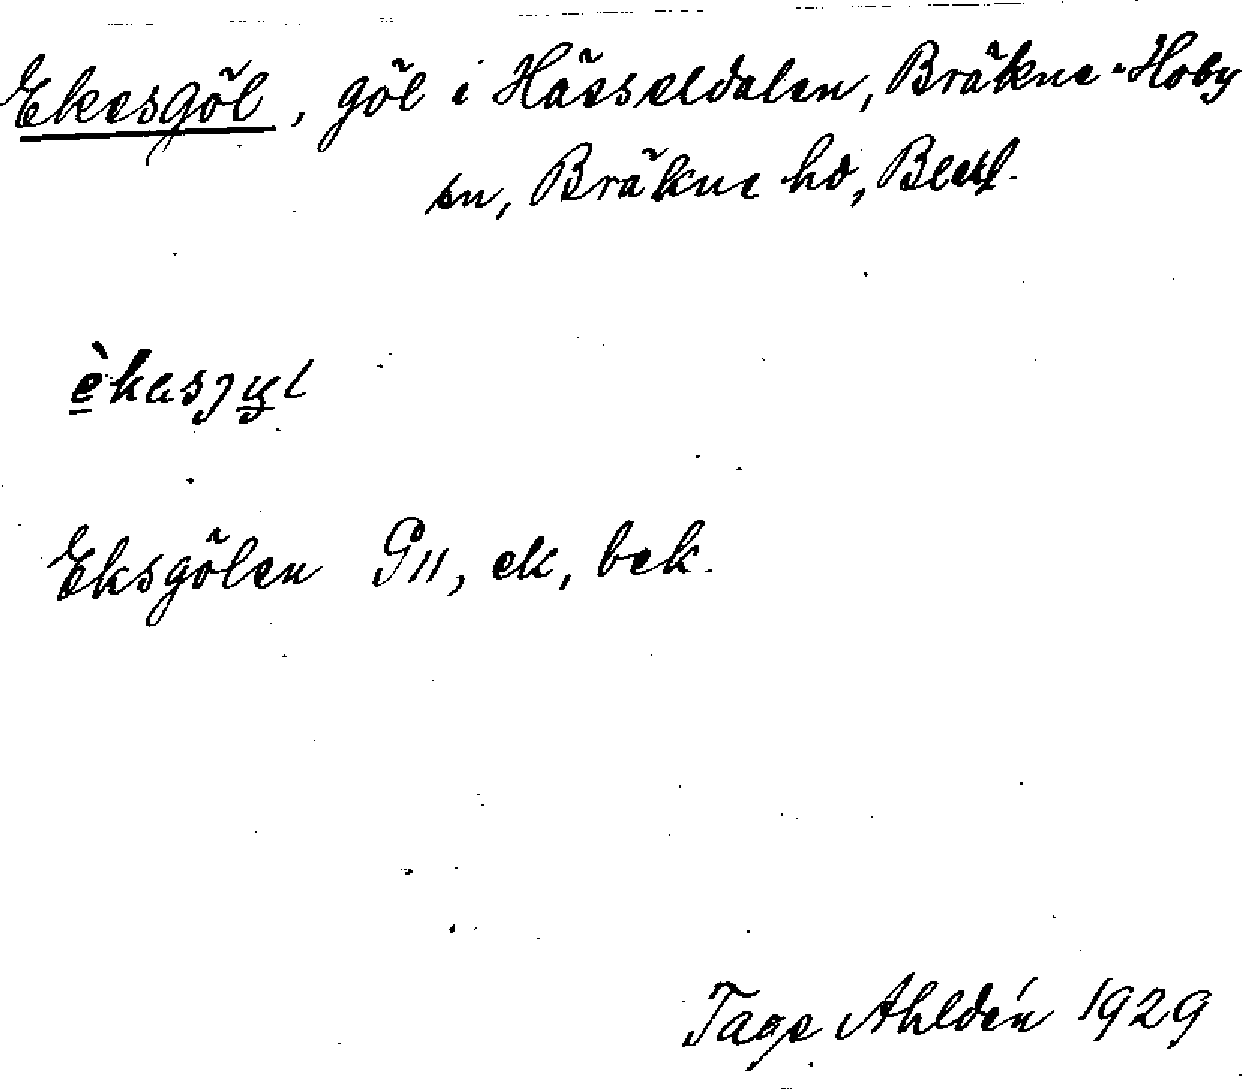 Ekesgöl, göl i Hässeldalen, Bräkne-Hoby
sn, Bräkne hd, Blek.
èkasjyl
Eksgölen G11, ek, bek.
Tage Ahldén 1929